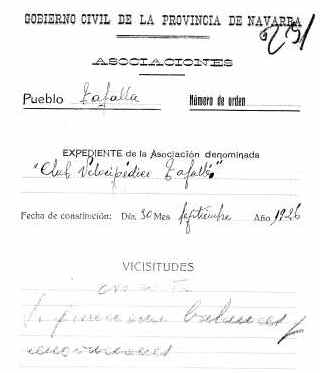 GOBIERNO CIVIL DE LA PROVINCIA DE NAVARRA
291
ASOCIACIONES
Pueblo Tafalla Número de orden
EXPEDIENTE de la Asociación denominada
"Club Velocipédico Tafallés"
Fecha de constitución: Día 30 Mes septiembre Año 1926
VICISITUDES